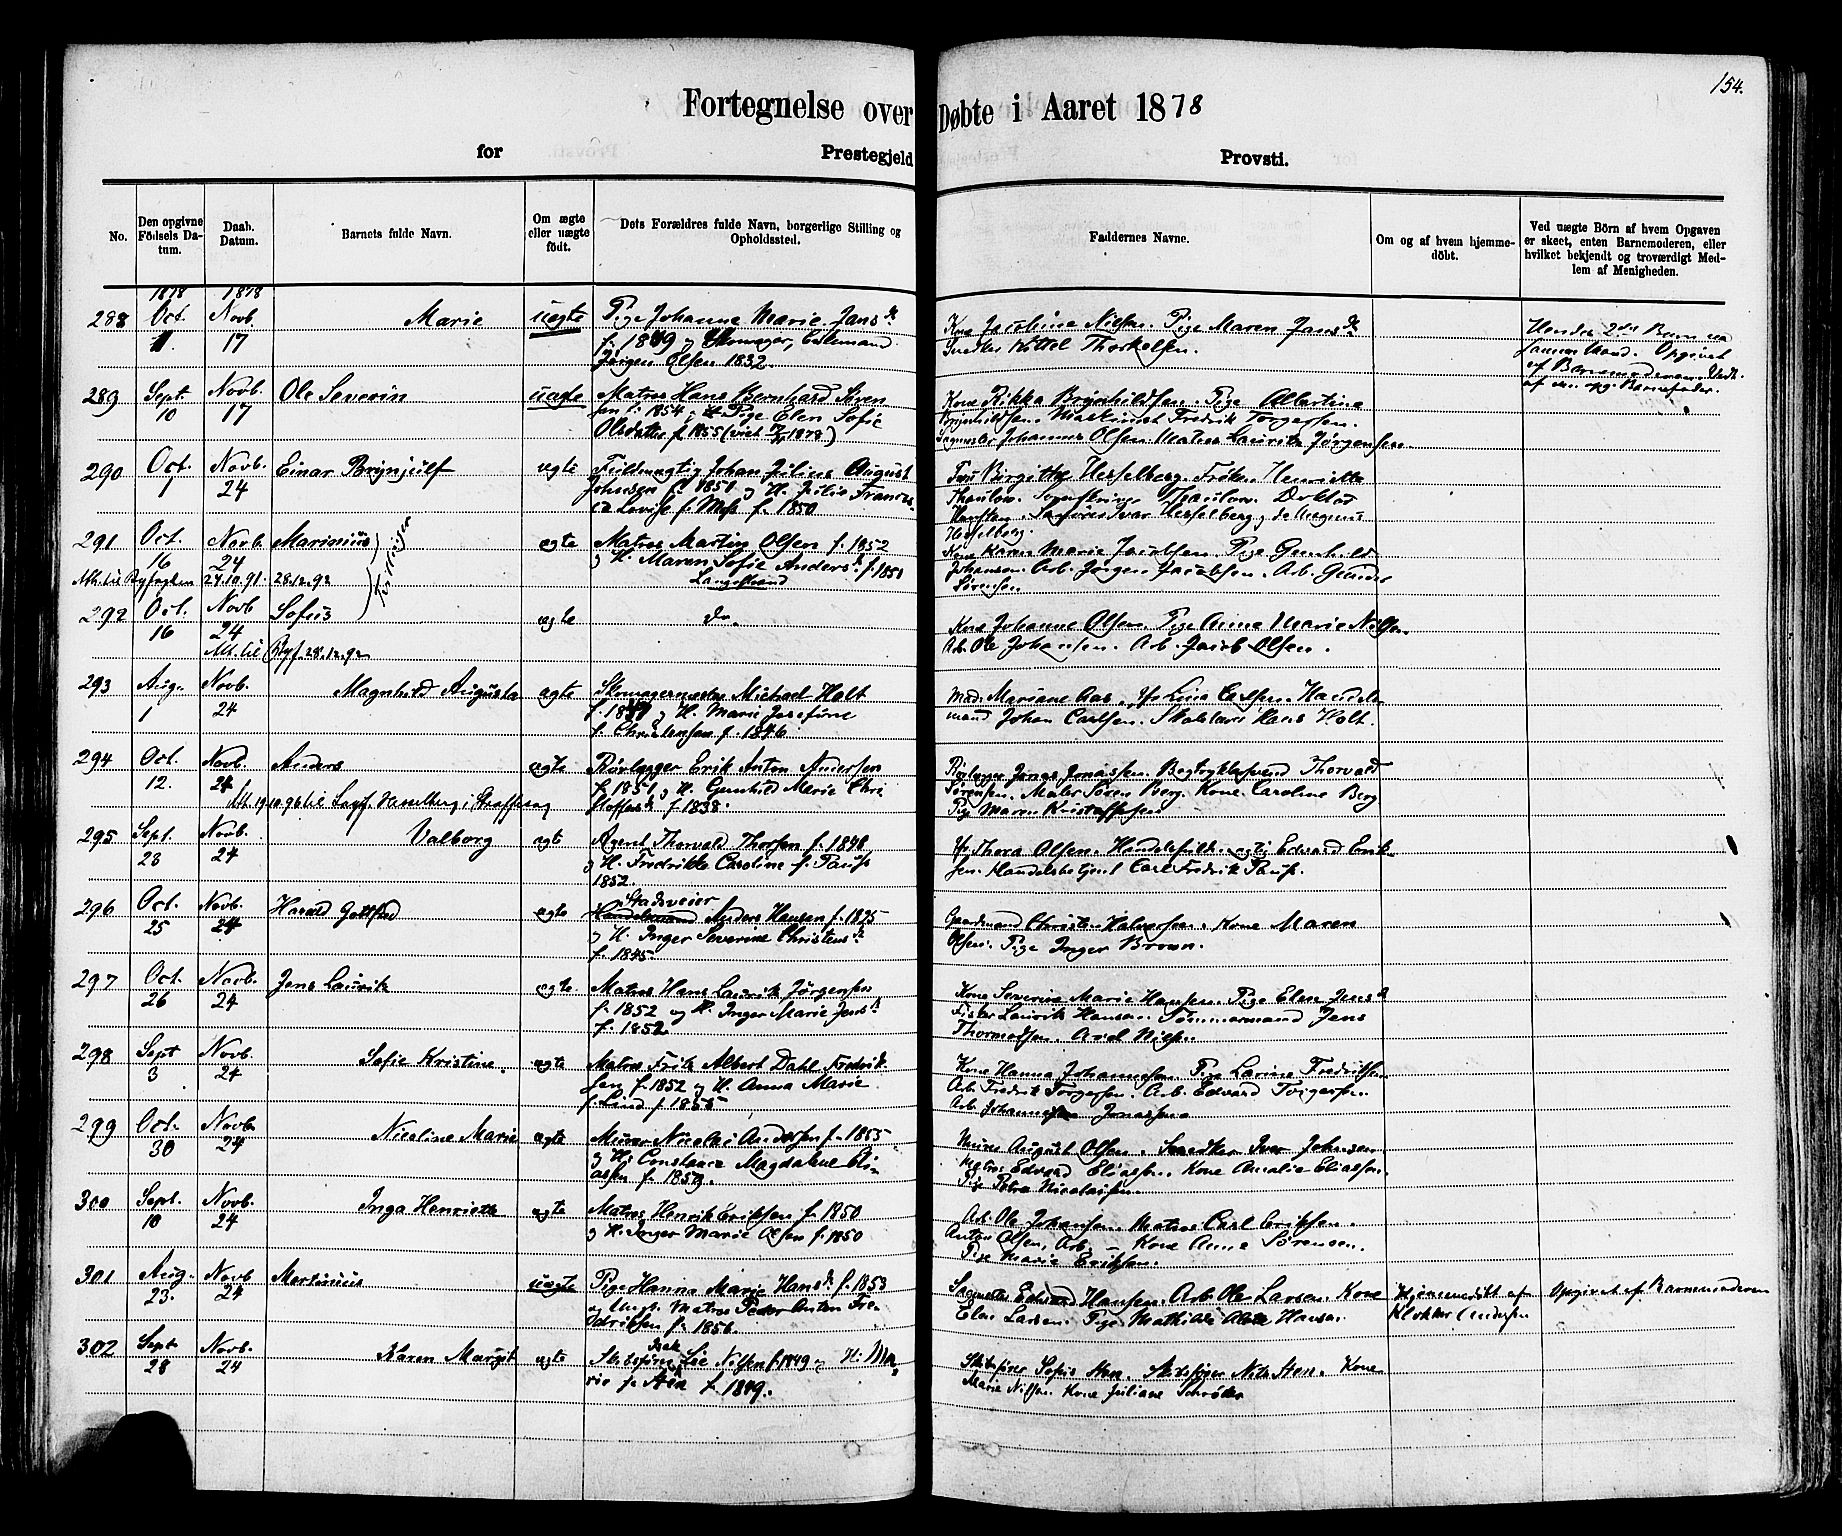 154.
Fortegnelse over Døbte i Aaret 1878
for Prestegjeld Provsti.
No.
Den opgivne Födsels Datum.
Daab. Datum.
Barnets fulde Navn.
Om ægte eller uægte födt.
Dets Forældres fulde Navn, borgerlige Stilling og Opholdssted.
Faddernes Navne.
Om og af hvem hjemmedöbt.
Ved uægte Börn af hvem Opgaven er skeet, enten Barnemoderen, eller hvilket bekjendt og troværdigt Medlem af Menigheden.
1878 1878
288 Oct. Novb. Marie uægte Pige Johanne Marie Jansd. Kone Jacobine Nilsen. Pige Maren Jansd.
17 f. 1849 og Skomager,
Jørgen Olsen 1832. Snedker Kittel Thorkelsen.
Hendes 2det Barn
Opgivet
af Barnemoderen.
289 Sept Novb. Ole Severin uægte Matros Hans Bernhard Søren Kone Rikka Brynhildsen. Pige Albertine
10 17 sen f. 1854 og Pige Elen Sofie Brynhildsen. Maskinist Fredrik Torgersen.
Olsdatter f. 1855 (viet 1878) Johannes Olsen. Matros Lauritz Jørgensen
290 Oct. Novb. Einar Brynjulf ægte Fuldmægtig Johan Julius August Fru Birgitte Hesselberg. Frøken Henriette
1 24 Johnsen f. 1851 og H. Julie Francis Thaulow. Sogneprest Thaulow. Doktor
ca Lovise f. f. 1850 Ivar Hesselberg
Hesselberg.
291 Oct. Novb. Marinius ægte Matros Martin Olsen f. 1852 Kone Karen Marie Jacobsen. Pige Gunhild
16 24 Tvillinger og H. Maren Sofie Andersd. f. 1851 Johansen. Arb. Jørgen Jacobsen. Arb. Gunder
Att. til Byfogden 27.10.91. 28.12.92 Langestrand Sørensen
292 Oct. Novb Sofus ægte do. Kone Johanne Olsen. Pige Anne Marie Nilsen.
16 24 Arb. Ole Johansen. Arb. Jacob Olsen.
Att. til Byf. 28.12.92
293 Aug. Novb. Magnhild Augusta ægte Skomagermester Michael Holt Mad. Mariane Aas. Lina Carlsen. Handels
1 24 og H. Marie Josefine mand Johan Carlsen. Skolelærer Hans Holt.
f. Christensen f. 1846
294 Oct. Novb. Anders ægte Rørlægger Erik Anton Andersen Rørlægger Jonas Jonassen. Bogtrykkersvend Thorvald
12. 24 f. 1851 og H. Gunhild Marie Chri Sørensen. Maler Søren Berg. Kone Caroline Berg
stoffersd. f. 1838. Pige Maren Kristoffersen
295 Sept. Novb. Valborg ægte Agent Thorvald Thorsen f. 1848 Thora Olsen. Handelsfuldmægtig Edvard Erik
23 24 og H. Fredrikke Caroline f. Paus sen. Handelsbetjent Carl Fredrik Paus.
1852.
296 Oct. Novb. Harald Gottfred ægte Stadsveier
25 24 Handelsmand Anders Hansen f. 1825 Gaardmand Christen Halvorsen. Kone Maren
og H. Inger Severine Christensd. Olsen. Pige Inger Brown.
f. 1845
297 Oct. Novb. Jens Lauritz ægte. Matros Hans Lauritz Jørgensen Kone Severine Marie Hansen. Pige Elen Jensd
26 24 f. 1852 og H. Inger Marie Jensd. Fisker Lauritz Hansen. Tømmermand Jens
f. 1852. Thormodsen. Axel Nilsen
298 Sept Novb. Sofie Kristine. ægte Matros Fritz Albert Dahl Fredrik Kone Hanna Johannesen. Pige Larine Fredriksen
3 24 sen f. 1852 og H. Anna Marie Arb. Fredrik Torgersen. Arb. Edvard Torgersen.
f. Lind f. 1855 Arb. Johannes Jonassen
299 Oct. Novb. Nicoline Marie ægte Murer Nicolai Andersen f. 1855 Murer August Olsen. Snedker Iver Johnsen
30 24 og H. Constance Magdalene Eli Matros Edvard Eliassen. Kone Amalie Eliassen.
assen f. 1859. Pige Petra Nicolaisen.
300 Sept. Novb. Inga Henriette ægte Matros Henrik Eriksen f. 1850 Arb. Ole Johansen. Matros Carl Eriksen.
10 24 og H. Inger Marie Olsen f. 1850 Anton Olsen, Arb. – Kone Anne Sørensen.
Pige Marie Eriksen.
301 Aug. Novb Martinius uægte Pige Hanna Marie Hansd. f. 1853 Edvard Hansen. Arb. Ole Larsen. Kone Hjemmedöbt af Opgivet af Barnemoderen
23. 24 og Ungk. Matros Peder Anton Fre Elen Larsen. Pige Mathilde Hansen Klokker Andersen
driksen f. 1856.
302 Sept Novb. Karen Margit ægte Skibsfører Isak Lie Nilsen f. 1849 og H. Ma Skibsfører Sofus Steen. Skibsfører Nils Steen. Kone
28 24 rie f. f. 1849. Marie Nilsen. Kone Juliane Schrøder